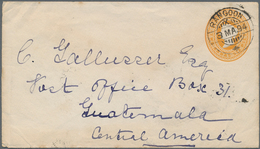 RANGOON
3 MA 94
G. Gallusser Esq
Post Office Box 31.
Guatemala
Central America